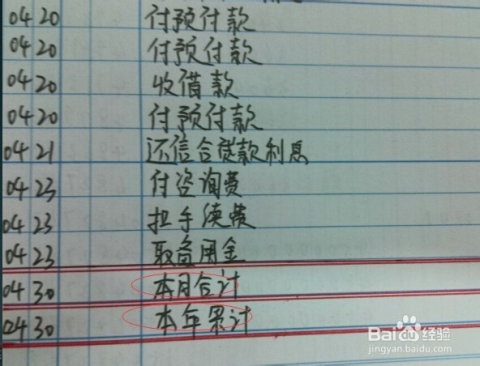 04 20 付预付款
04 20 付预付款
04 20 收借款
04 20 付预付款
04 21 还信合贷款利息
04 23 付咨询费
04 23 扣手续费
04 23 取备用金
04 30 本月合计
04 30 本年累计
Baidu 经验
jingyan.baidu.com